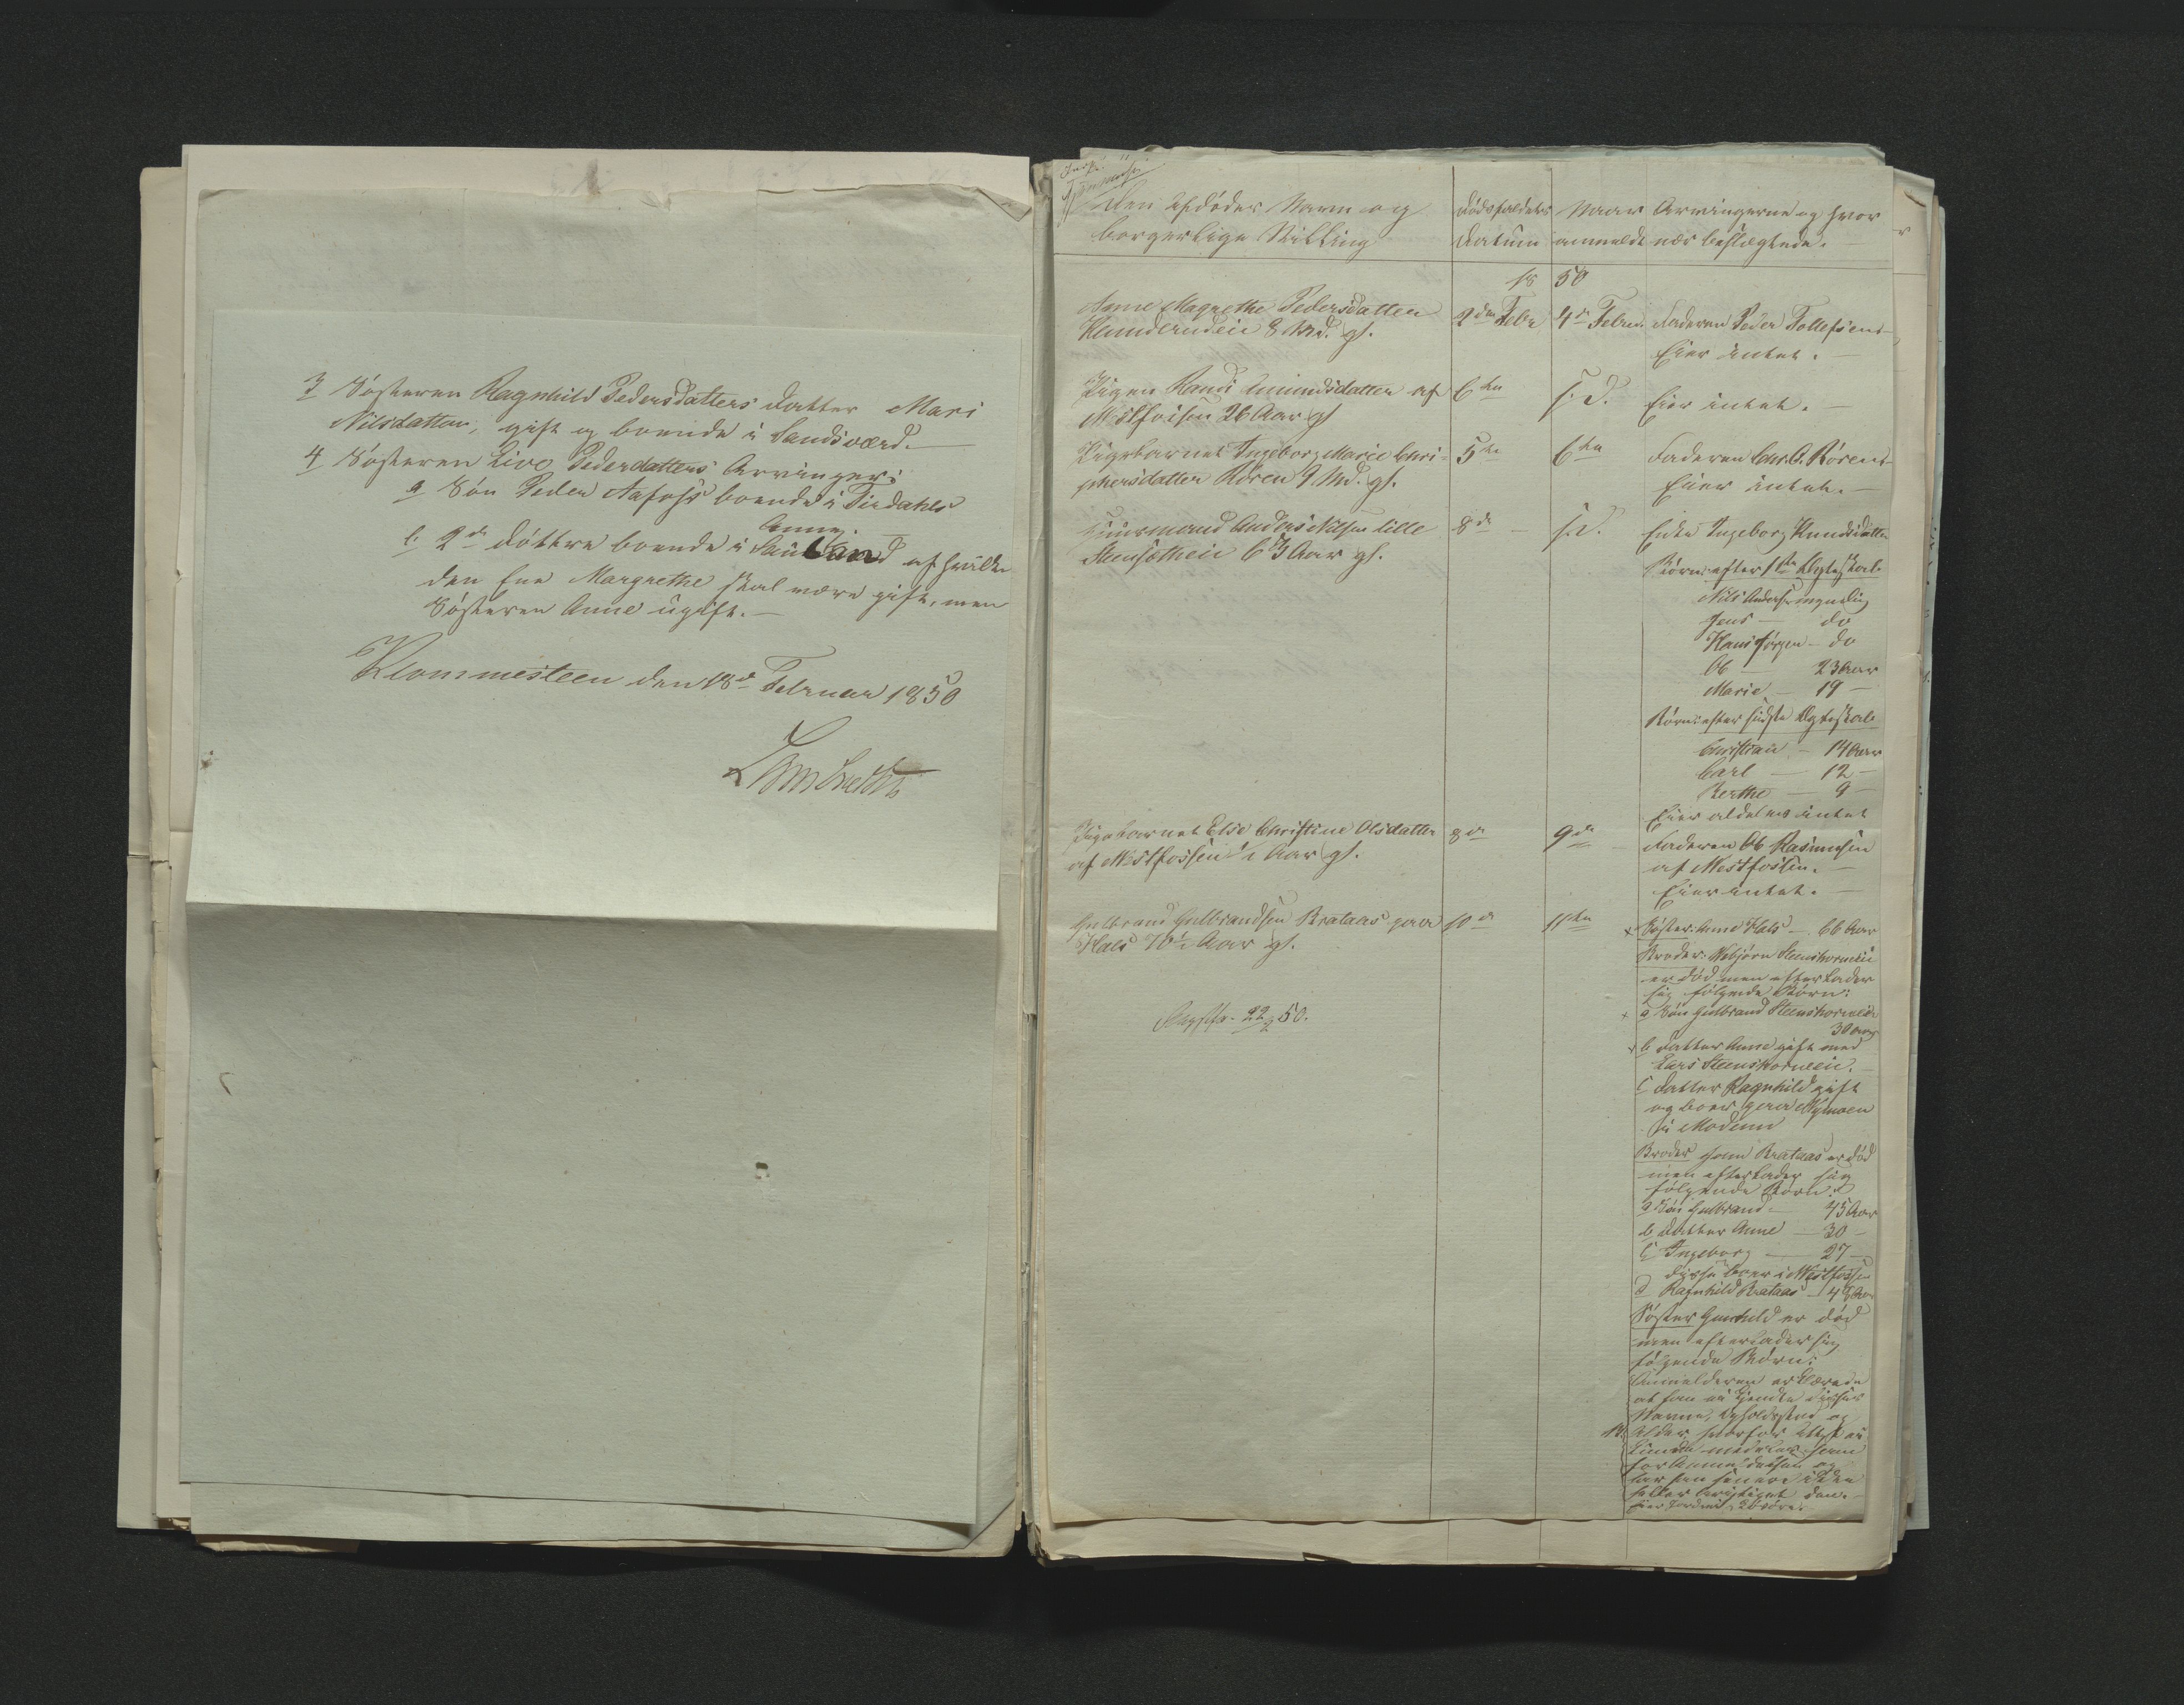 3 Søsteren Ragnhild Pedersdatters datter Mari
Nilsdatter, gift og boende i Sandsværd.
4 Søsteren Live Pedersdatters Arvinger:
a Søn Peder Aafoss boende i Tindahl
Anne
b 2de døttre boende i Sandland af hvilke
den Ene Margrethe skal være gift, men
Søsteren Anne ugift.
Klommesteen den 18de Februar 1850
Lambrechts
Den Afdødes Navn og
borgerlige Stilling
Dødsfaldets
Datum
Naar
anmeldt
Arvingerne og hvor
nær beslægtede.
18 50
Anne Magrethe Pedersdatter
Hunderudeie 8 Md. gl.
2den Febr
4de Februar
Faderen Peder Tollefsens
Eier intet.
Pigen Randi Amundsdatter af
Westfossen 26 Aar gl
6te
s. D.
Eier intet.
Pigebarnet Ingeborg Marie Chri-
phersdatter Røren 9 Md. gl.
5te
6te
Faderen Chr. O. Rørens
Eier intet.
Huusmand Anders Nilsen lille
Stensetheie 63 Aar gl.
8de
s. D.
Enke Ingeborg Knudsdatter
Børn efter 1ste Ægteskab
Nils Andersen myndig
Jens do
Hans Jørgen do
Ole 23 Aar
Marie 19
Børn efter sidste Ægteskab
Christian 14 Aar
Carl 12
Berthe 9
Eier aldeles intet
Pigebarnet Else Christine Olsdatter
af Westfossen ½ Aar gl.
8de
9de
Faderen Ole Rasmusen
af Westfossen.
Eier intet.
Gulbrand Gulbrandsen Brataas paa
Hals 70½ Aar gl.
10de
11te
Søster: Anne Hals 66 Aar
Broder: Webjørn Steenshorneie
er død men efterlader
sig følgende Børn:
a Søn Gulbrand Steenshorneie
30 Aar
b datter Anne gift med
Lars Steenshorneie.
c datter Ragnhild gift
og boer paa Nymoen
i Modum
Broder Brataas er død
men efterlader sig
følgende Børn:
a Søn Gulbrand 45 Aar
b datter Anne 30
c Ingeborg 27
disse boer i Westfossen
d Ragnhild Brataas
Søster Gunhild er død
men efterlader sig
følgende Børn:
Anmelderen erklærede
at han ei kjendte disses
Navne, Opholdssted og
Alder hvorfor
22/2 50.